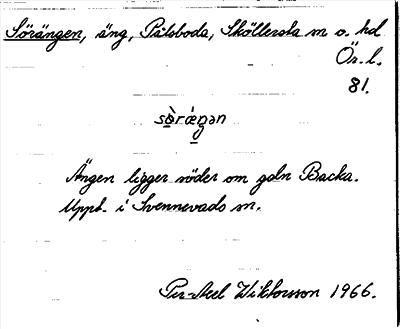 Sörängen, äng, Pålsboda, Sköllersta sn o. hd
Ör. l.
81.
Ängen ligger söder om gdn Backa.
Uppt. i Svennevads sn.
Per-Axel Wiktorsson 1966.